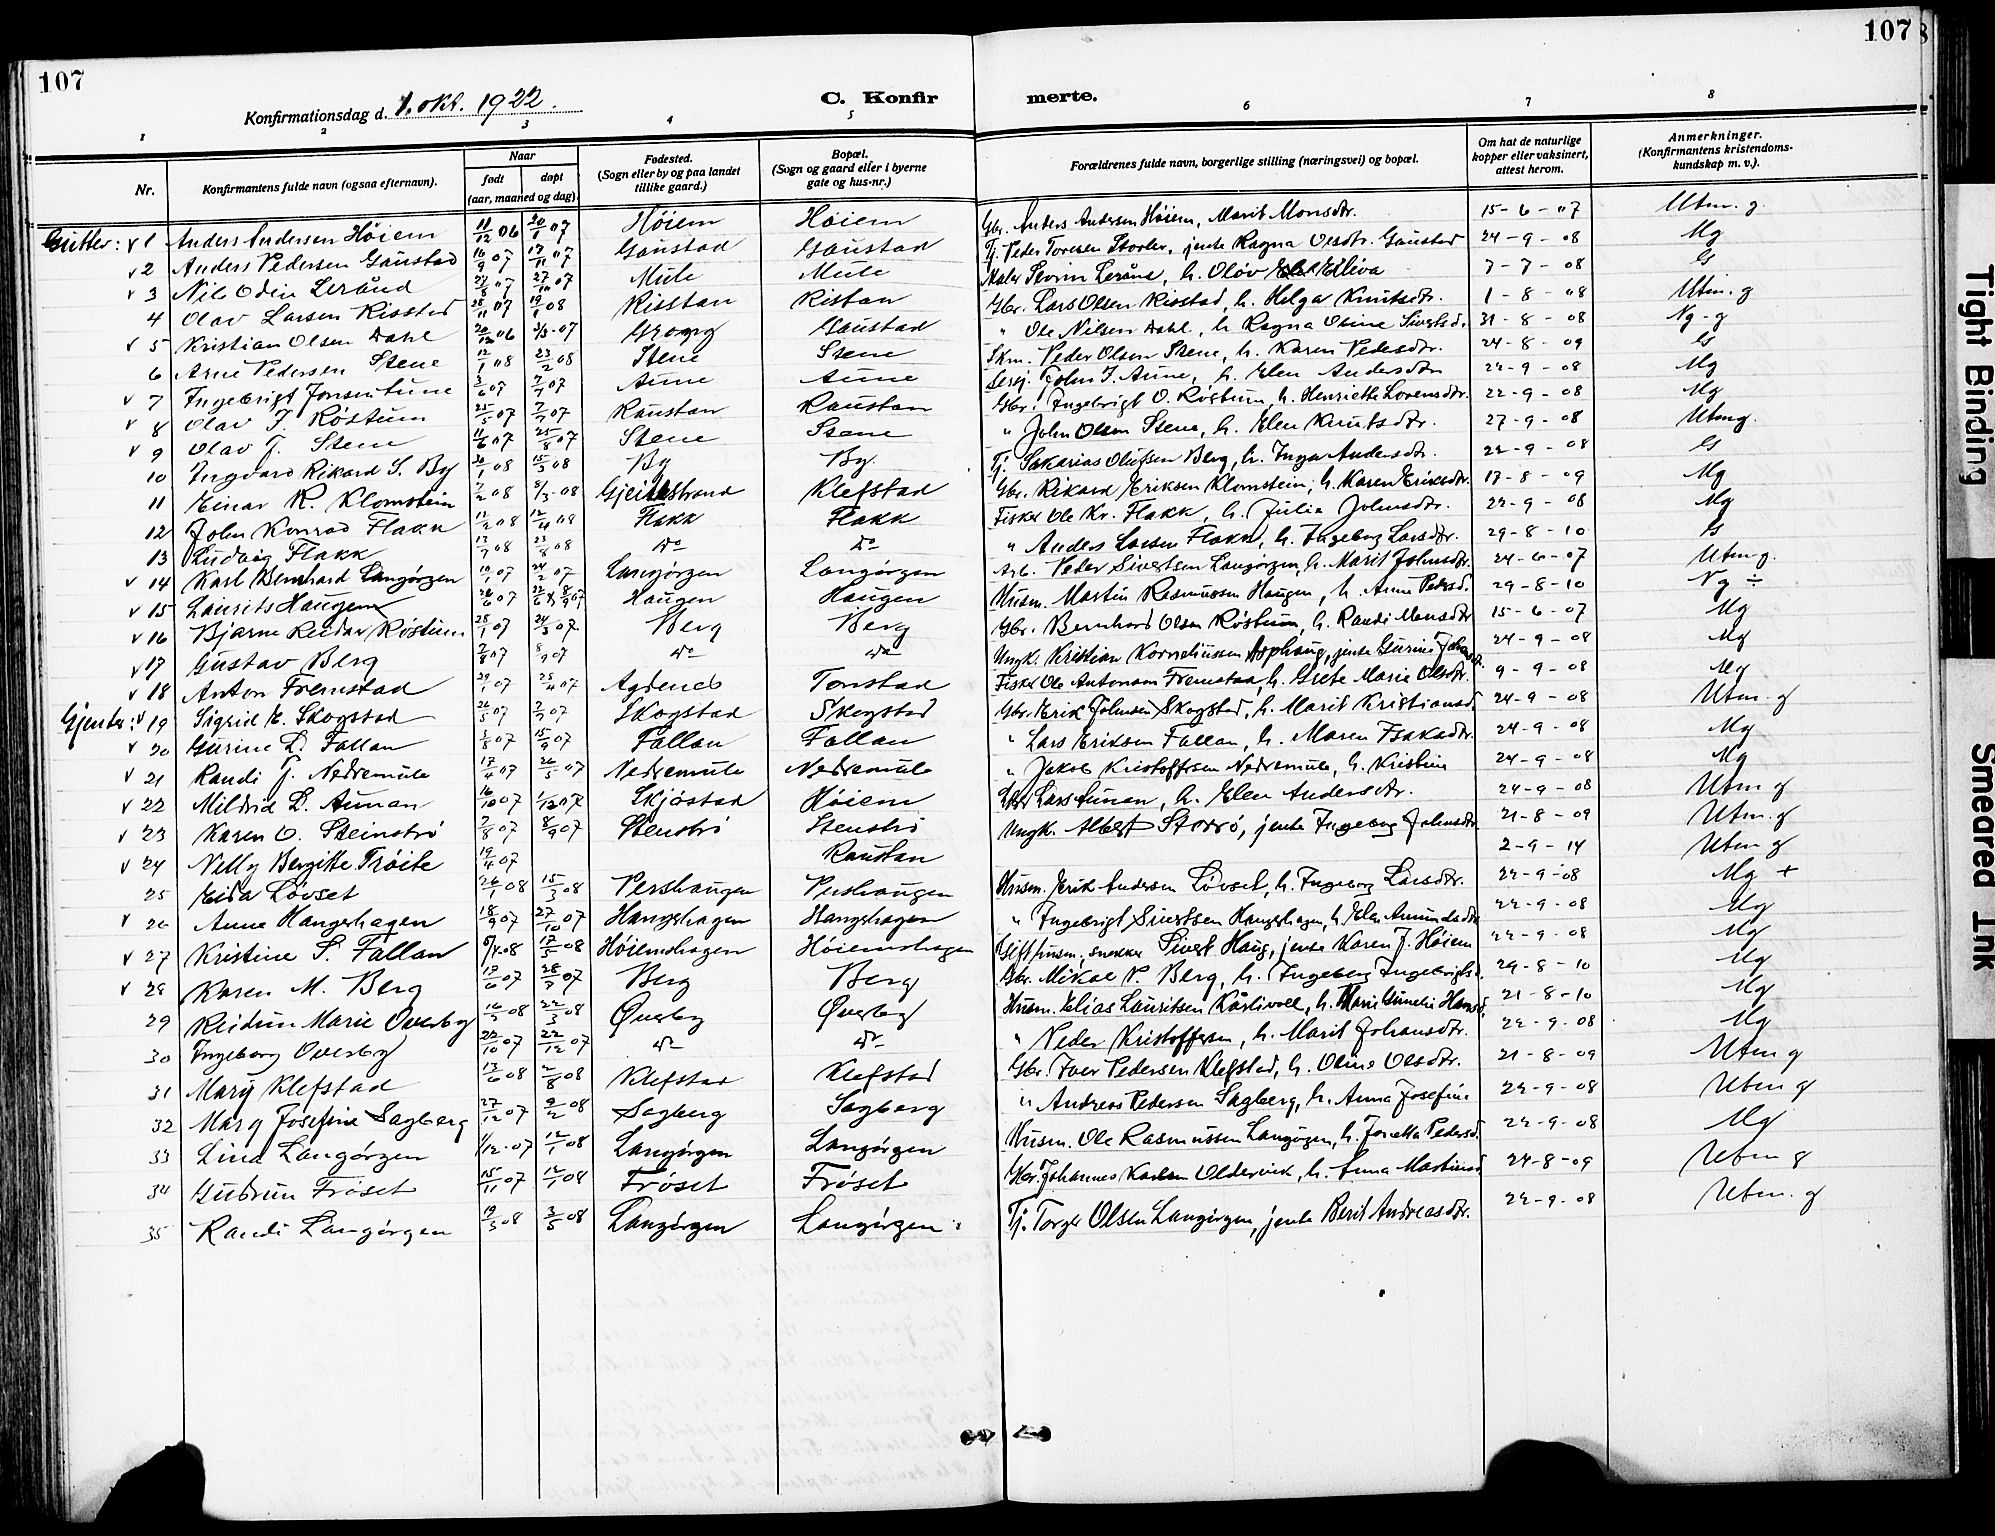 107
107
Konfirmationsdag d. 1. okt. 1922.
C. Konfir
merte.
1 2 3 4 5 6 7 8
Nr.
Konfirmantens fulde navn (ogsaa efternavn).
Naar
født
døpt
(aar, maaned og dag).
Fødested.
(Sogn eller by og paa landet
tillike gaard.)
Bopæl.
(Sogn og gaard eller i byerne
gate og hus-nr.)
Forældrenes fulde navn, borgerlige stilling (næringsvei) og bopæl.
Om hat de naturlige
kopper eller vaksinert,
attest herom.
Anmerkninger.
(Konfirmantens kristendoms-
kundskap m. v.).
Gutter: v 1 Anders Andersen Høiem 11/12 06 20/1 07 Høiem Høiem Gbr. Anders Andersen Høiem, Marit Monsdtr. 15-6-07 Utm. g
v 2 Anders Pedersen Gaustad 16/9 07 17/11 07 Gaustad Gaustad Tj. Peder Toresen, jente Ragna Olsdtr. Gaustad 24-9-08 Mg
v 3 Nils Odin Leraand 07 27/10 07 Mule Mule Maler Severin, h. Oløv 7-7-08 G
4 Olav Larsen Risstad 28/11 07 19/1 08 Risstan Ristan Gbr. Lars Olsen Risstad, h. Helga Knutsdtr. 1-8-08 Utm. g
v 5 Kristian Olsen Dahl 20/12 06 3/3-07 Grong Gaustad " Ole Nilsen Dahl, h. Ragna Oline Sivertsd. 31-8-08 Ng-g
6 Arne Pedersen Stene 12/1 08 23/2 08 Stene Stene Skm. Peder Olsen Stene, h. Karen Pedersdtr. 24-8-09 G
v 7 Ingebrigt Jonsen Aune 3/6 07 7/7 07 Aune Aune John I. Aune, h. Elen Andersdtr 22-9-08 Mg
v 8 Olav I. Røstum 25/5 07 7/7 07 Raustan Raustan Gbr. Ingebrigt O. Røstum, h. Henriette Lorensdtr. 22-9-08 Mg
v 9 Olav J. Stene 11/6 07 25/8 07 Stene Stene " John Olsen Stene, h. Elen Knutsdtr. 27-9-08 Utm g.
10 Ingvard Rikard S. By 20/1 08 15/3 08 By By. Tj. Sakarias Olufsen Berg, h. Inger Andersdtr. 22-9-08 G
11 Einar R. Klomstein 7/2 08 8/3-08 Gjeitestrand Klefstad Gbr. Rikard Eriksen Klomstein, h. Karen Eriksdtr. 17-8-09 Mg
12 John Konrad Flakk 12/2 08 12/4 08 Flakk Flakk Fisker Ole Kr. Flakk, h. Julia Johnsdtr. 22-9-08 Mg
13 Ludvig Flakk 17/7 08 23/8 08 do do " Anders Larsen Flakk, h. Ingeborg Larsdtr. 29-8-10 G
v 14 Karl Bernhard Langørgen 10/1 07 24/2 07 Langørgen Langørgen Arb. Peder Sivertsen Langørgen, h. Marit Johnsdtr. 24-6-07 Utm g.
v 15 Laurits Haugen 20/6 07 22/6 8/9 07 Haugen Haugen Husm. Martin Rasmussen Haugen, h. Anne Pedersd. 29-8-10 Ng ÷
v 16 Bjarne Reidar Røstum 28/1 07 24/3 07 Berg Berg Gbr. Bernhard Olsen Røstum, h. Randi Monsdtr. 15-6-07 Mg
v 17 Gustav Berg 2/8 07 8/9 07 do do Ungk. Kristian Korneliussen Asphaug, jente Gurine 24-9-08 Mg
v 18 Anton Fremstad 29/1 07 28/4 07 Agdenes Tonstad Fisker Ole Antonsen Fremstad, h. Grete Marie Olsdtr. 9-9-08 Mg
Gjenter: v 19 Sigrid E. Skogstad 26/5 07 7/7 07 Skogstad Skogstad Gbr. Erik Johnsen Skogstad, h. Marit Kristiansd. 24-9-08 Utm. g
v 20 Gurine L. Fallan 3/8 07 15/9 07 Fallan Fallan " Lars Eriksen Fallan, h. Maren Isaksdtr. 24-9-08 Mg
v 21 Randi J. Nedremule 17/4 07 26/5 07 Nedremule Nedremule " Jakob Kristoffersen Nedremule, h. Kristine 24-9-08 Mg
v 22 Mildrid L. Aunan 16/10 07 1/12 07 Skjøstad Høiem Lars Aunan, h. Elen Andersdtr. 24-9-08 Utm g
v 23 Karen O. Steinstrø 7/8 07 8/9 07 Stenstrø Stenstrø Ungk. Albert Storrø, jente Ingeborg Johnsdtr. 21-8-09 Utm. g
v 24 Nelly Bergitte Trøite 19/4 07 Raustan 2-9-14 Utm g
25 Eida Løvset 26/1 08 15/3 08 Pershaugen Pershaugen Husm. Erik Andersen Løvset, h. Ingeborg Larsdtr. 22-9-08 Mg +
v 26 Anne Hangshagen 18/9 07 27/10 07 Hangshagen Hangshagen " Ingebrigt Sivertsen Hangshagen, h. Elen Amundsdtr. 22-9-08 Mg
v 27 Kristine S. Fallan 08 17/5 08 Høiemshagen Høiemshagen Gift husm., snekker Sivert Haug, jente Karen J. Høiem 22-9-08 Mg
v 28 Karen M. Berg 17/6 07 28/7 07 Berg Berg Gbr. Mikal P. Berg, h. Ingeborg Ingebrigtsd. 29-8-10 Mg
29 Reidun Marie Overby 16/2 08 22/3 08 Øverby Øverby Husm. Elias Lauritsen Kårlivoll, h. Marie 21-8-10 Mg
30 Ingeborg Overby 22/10 07 22/12 07 do do " Peder Kristoffersen, h. Marit Johansdtr. 22-9-08 Mg
31 Mary Klefstad 13/6 08 2/8 08 Klefstad Klefstad Gbr. Iver Pedersen Klefstad, h. Oline Olsdtr. 21-8-09 Utm g
32 Mary Josefine Sagberg 27/12 07 9/2 08 Sagberg Sagberg " Andreas Pedersen Sagberg, h. Anna Josefine 22-9-08 Utm g
33 Lina Langørgen 1/12-07 12/1 08 Langørgen Langørgen Husm. Ole Rasmussen Langørgen, h. Jonetta Pedersd. 22-9-08 Mg
34 Gudrun Frøset 15/11 07 12/1 08 Frøset Frøset Gbr. Johannes Karlsen Oldervik, h. Anna Martinsd. 24-8-09 Utm g
35 Randi Langørgen 19/3 08 3/5 08 Langørgen Langørgen Tj. Torger Olsen Langørgen, jente Berit Andreasdtr. 22-9-08 Utm. g
Tight Binding
Smeared Ink